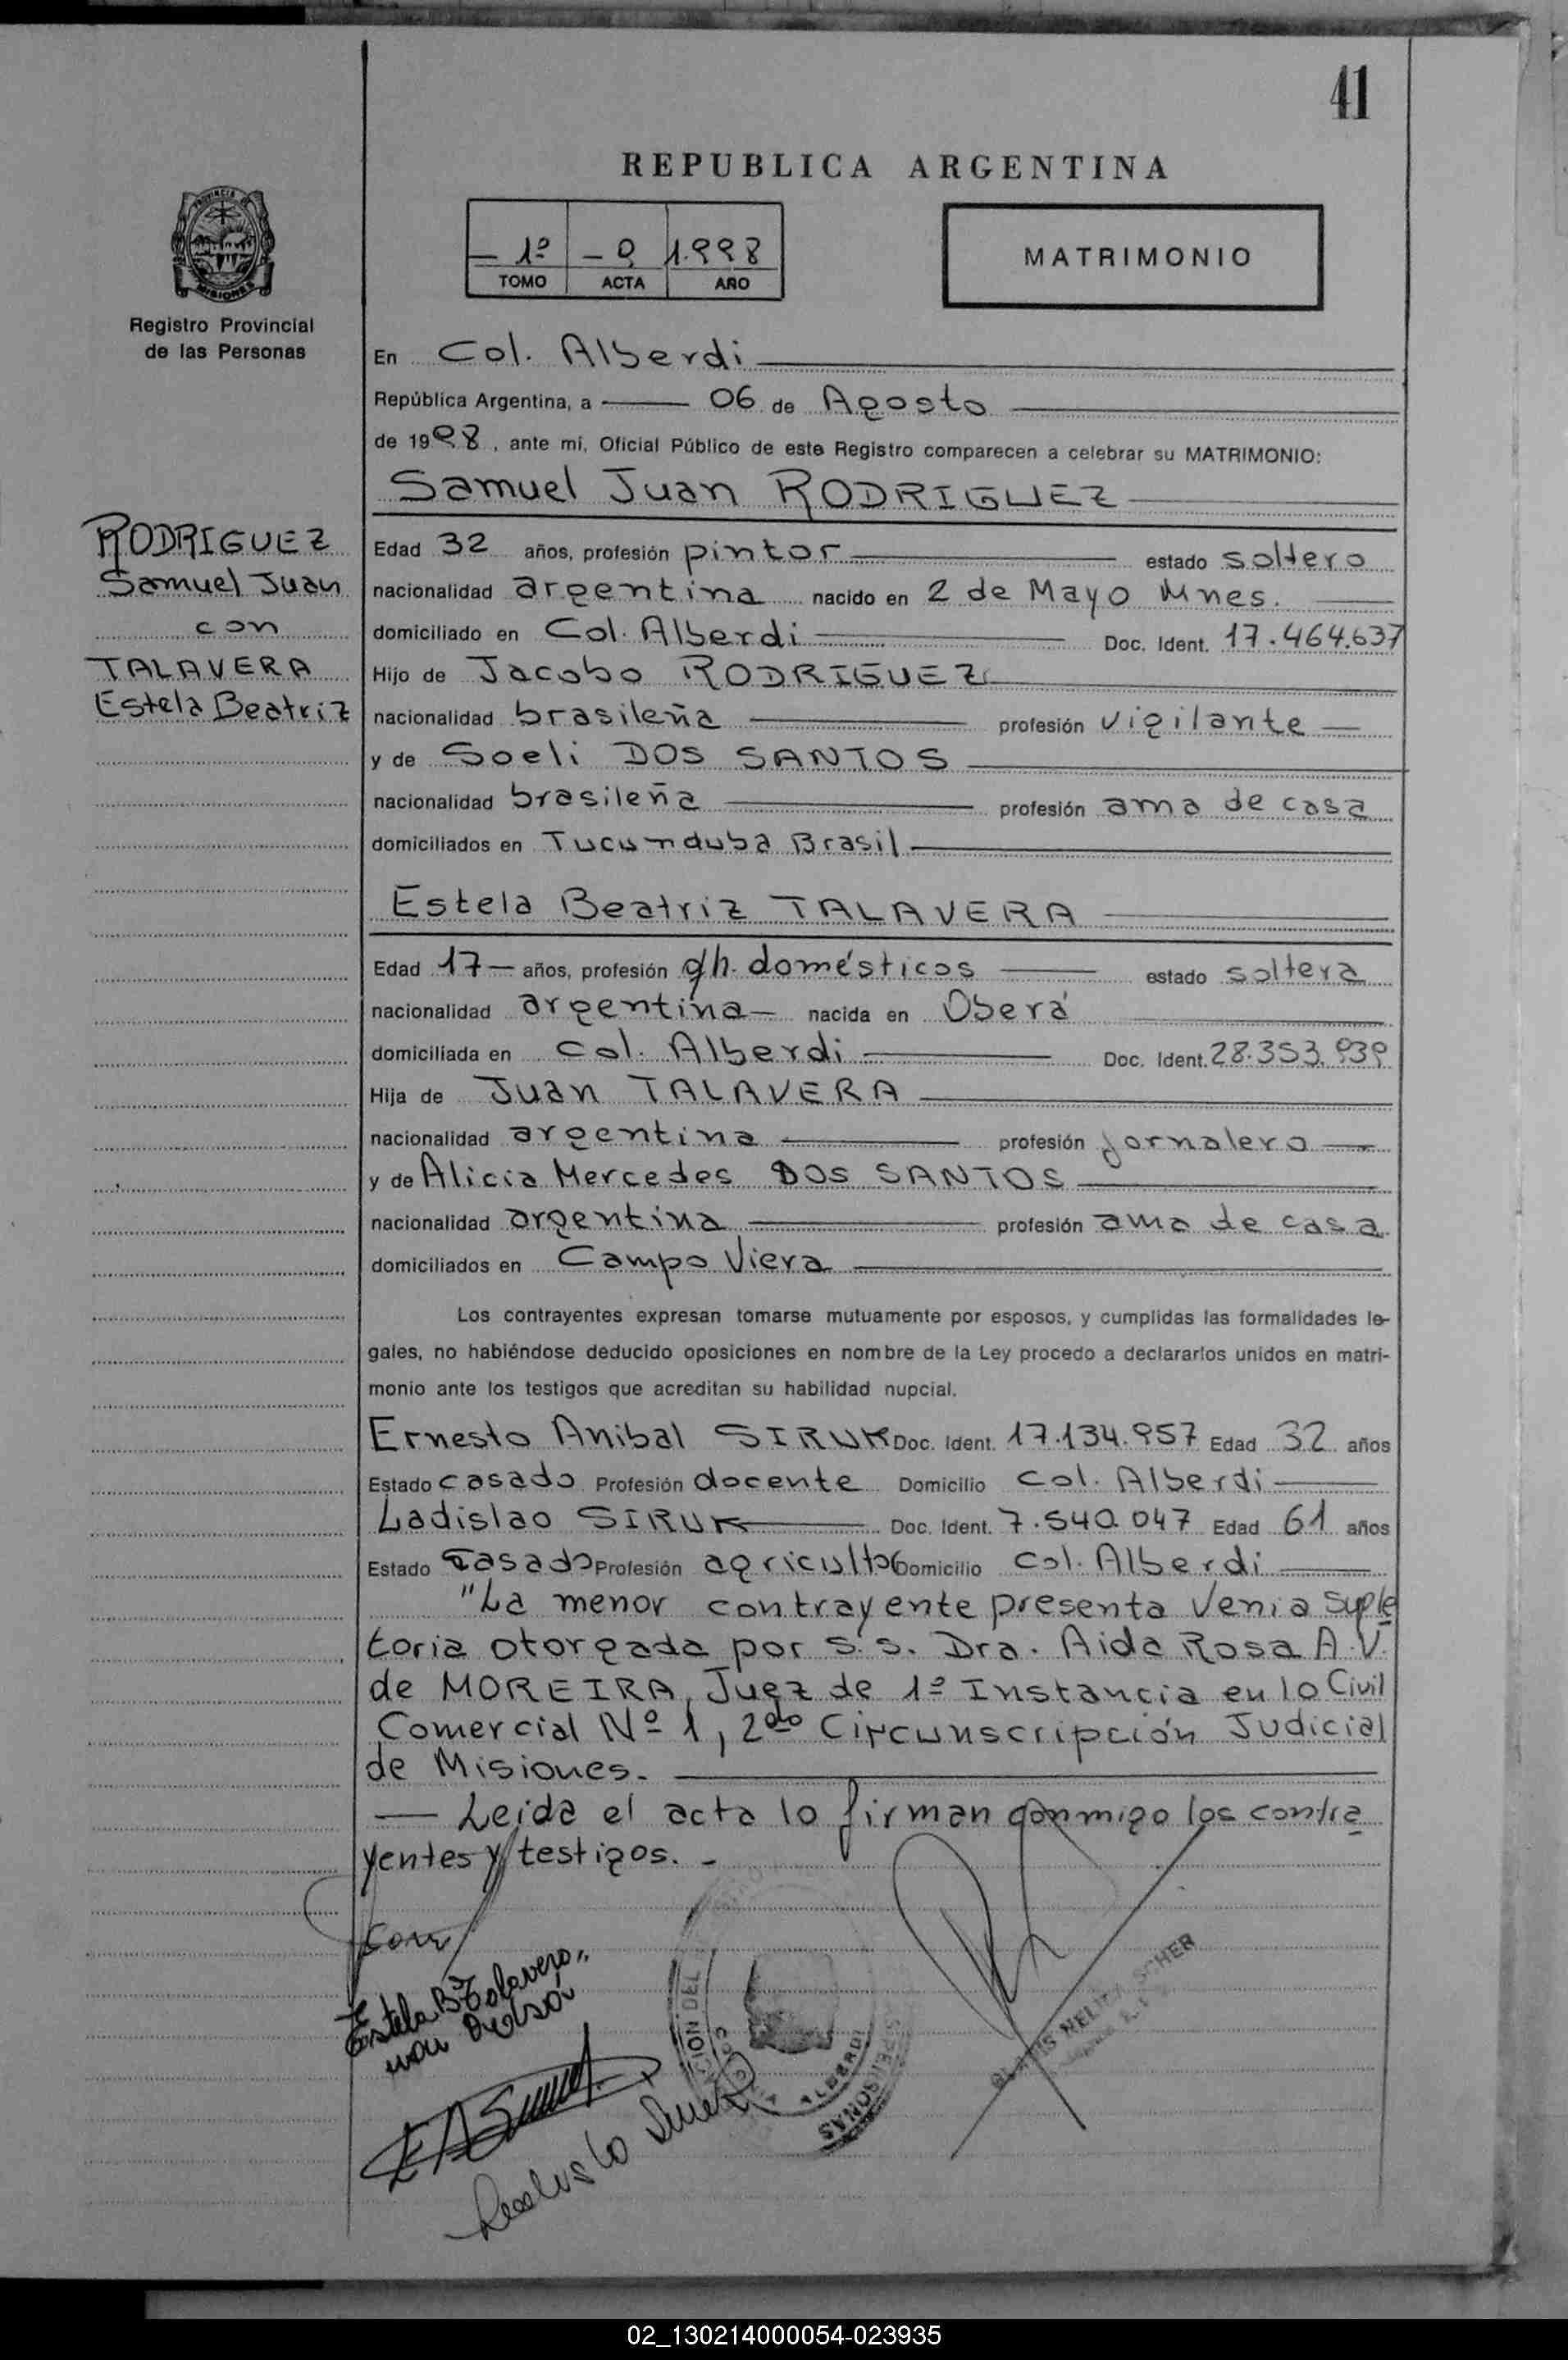 41
REPUBLICA ARGENTINA
1º 9 1.998
TOMO ACTA AÑO
MATRIMONIO
PROVINCIA DE
MISIONES
Registro Provincial
de las Personas
En Col. Alberdi
República Argentina, a 06 de Agosto
de 1998, ante mí, Oficial Público de este Registro comparecen a celebrar su MATRIMONIO:
Samuel Juan RODRIGUEZ
RODRIGUEZ
Samuel Juan
con
TALAVERA
Estela Beatriz
Edad 32 años, profesión pintor estado soltero
nacionalidad argentina nacido en 2 de Mayo Mnes.
domiciliado en Col. Alberdi Doc. Ident. 17.464.637
Hijo de Jacobo RODRIGUEZ
nacionalidad brasileña profesión vigilante
y de Soeli DOS SANTOS
nacionalidad brasileña profesión ama de casa
domiciliados en Tucunduba Brasil
Estela Beatriz TALAVERA
Edad 17 años, profesión q/h. domésticos estado soltera
nacionalidad argentina nacida en Oberá
domiciliada en Col. Alberdi Doc. Ident. 28.353.939
Hija de Juan TALAVERA
nacionalidad argentina profesión jornalero
y de Alicia Mercedes DOS SANTOS
nacionalidad argentina profesión ama de casa
domiciliados en Campo Viera
Los contrayentes expresan tomarse mutuamente por esposos, y cumplidas las formalidades le-
gales, no habiéndose deducido oposiciones en nombre de la Ley procedo a declararlos unidos en matri-
monio ante los testigos que acreditan su habilidad nupcial.
Ernesto Anibal SIRUK Doc. Ident. 17.134.957 Edad 32 años
Estado casado Profesión docente Domicilio Col. Alberdi
Ladislao SIRUK Doc. Ident. 7.540.047 Edad 61 años
Estado casado Profesión agricultor Domicilio Col. Alberdi
"La menor contrayente presenta Venia Suple
toria otorgada por S.S. Dra. Aida Rosa A.V.
de MOREIRA, Juez de 1º Instancia en lo Civil
Comercial Nº 1, 2da Circunscripción Judicial
de Misiones.
Leida el acta lo firman conmigo los contra
yentes y testigos.
Estela B Talavera
ALBERDI
PERSONAS
02_130214000054-023935